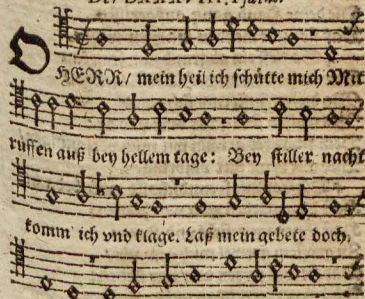 O
HERR/ mein heil ich schütte mich Mit
ruffen auß bey hellem tage: Bey stiller nacht
komm' ich vnd klage. Laß mein gebete doch.